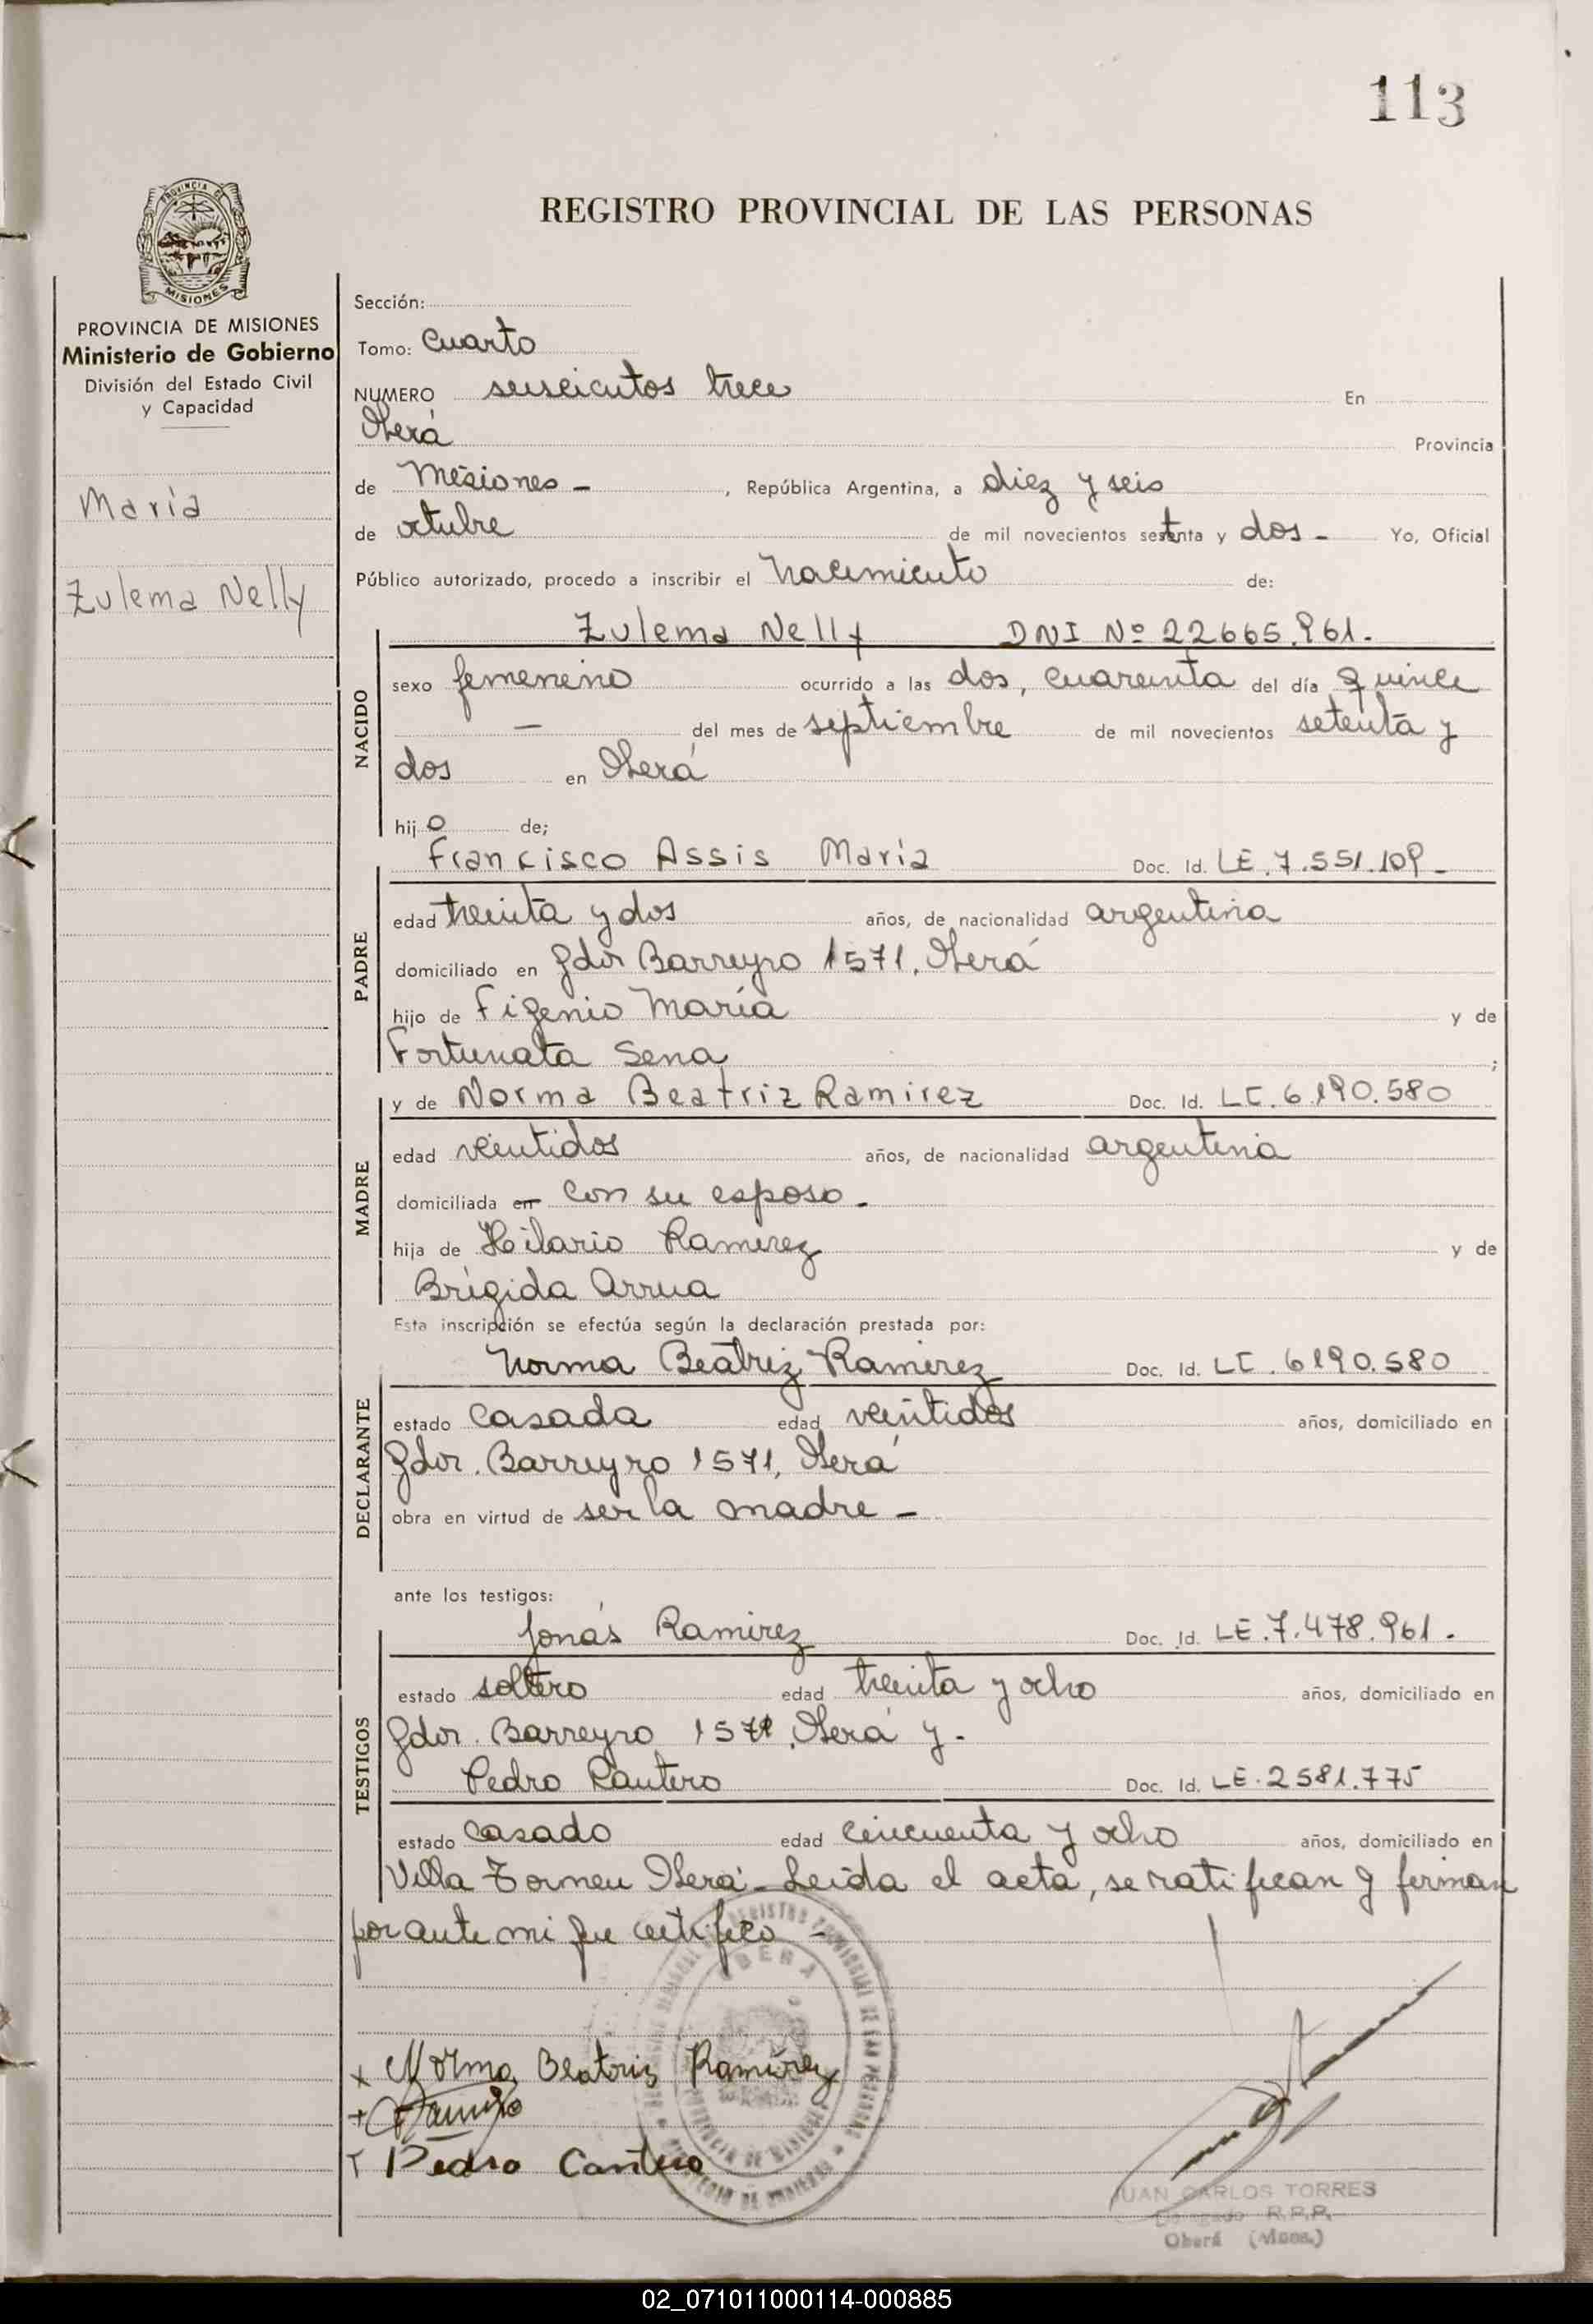 113
REGISTRO PROVINCIAL DE LAS PERSONAS
PROVINCIA DE MISIONES
Ministerio de Gobierno
División del Estado Civil
y Capacidad
María
Zulema Nelly
Sección:
Tomo: Cuarto
NUMERO seiscientos trece En
Oberá Provincia
de Misiones - , República Argentina, a diez y seis
de octubre de mil novecientos setenta y dos - Yo, Oficial
Público autorizado, procedo a inscribir el Nacimiento de:
NACIDO
Zulema Nelly DNI Nº 22665.961.
sexo femenino ocurrido a las dos, cuarenta del día quince
- del mes de septiembre de mil novecientos setenta y
dos en Oberá
hijo de;
PADRE
Francisco Assis María Doc. Id. LE.7.551.109-
edad treinta y dos años, de nacionalidad argentina
domiciliado en Gdor Barreyro 1571, Oberá
hijo de Figenio María y de
Fortunata Sena ;
MADRE
y de Norma Beatriz Ramirez Doc. Id. LC.6.190.580
edad veintidos años, de nacionalidad argentina
domiciliada en con su esposo.
hija de Hilario Ramirez y de
Brígida Arrua
Esta inscripción se efectúa según la declaración prestada por:
DECLARANTE
Norma Beatriz Ramirez Doc. Id. LC.6190.580
estado casada edad veintidos años, domiciliado en
Gdor. Barreyro 1571, Oberá
obra en virtud de ser la madre -
ante los testigos:
TESTIGOS
Jonás Ramirez Doc. Id. LE.7.478.961.
estado soltero edad treinta y ocho años, domiciliado en
Gdor. Barreyro 1571, Oberá y.
Pedro Cantero Doc. Id. LE.2581.775
estado casado edad cincuenta y ocho años, domiciliado en
Villa Oberá - Leida el acta, se ratifican y firman
por ante mi que certifico -
x Norma Beatriz Ramírez
+
Pedro Cantero
JUAN CARLOS TORRES
Delegado R.P.P.
Oberá (Mnes.)
02_071011000114-000885